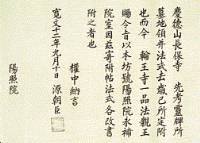 慶徳山長保寺 先考靈牌所
墓地領并法式去歳已所定附
也而今 輪王寺一品法親王
賜令旨以本坊號陽照院永補
院室因茲寄附帖法式各改書
附之者也
權中納言
寛文十二年九月十日 源朝臣
陽照院